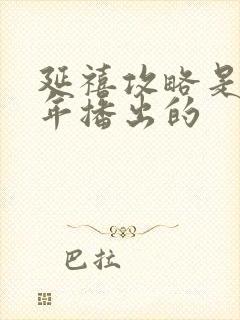 延禧攻略是
年播出的
巴拉